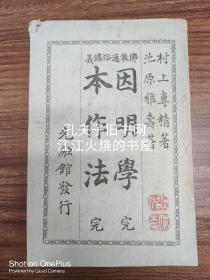 村上專精著
池原雅壽著
佛教通俗講義
因明學 完
本作法 完
光融館發行
孔夫子旧书网
江江火烧的书屋
Shot on OnePlus
By Quad Camera